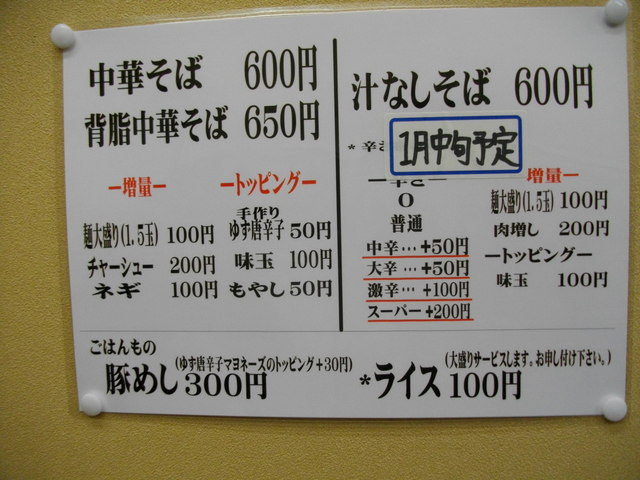 中華そば 600円
背脂中華そば 650円
ー増量ー
麺大盛り(1,5玉) 100円
チャーシュー 200円
ネギ 100円
ートッピングー
手作り
ゆず唐辛子 50円
味玉 100円
もやし 50円
汁なしそば 600円
*辛さ
1月中旬予定
ー辛さー
0
普通
中辛…+50円
大辛…+50円
激辛…+100円
スーパー+200円
増量ー
麺大盛り(1,5玉) 100円
肉増し 200円
ートッピングー
味玉 100円
ごはんもの
豚めし 300円
(ゆず唐辛子マヨネーズのトッピング+30円)
*ライス 100円
(大盛りサービスします。お申し付け下さい。)